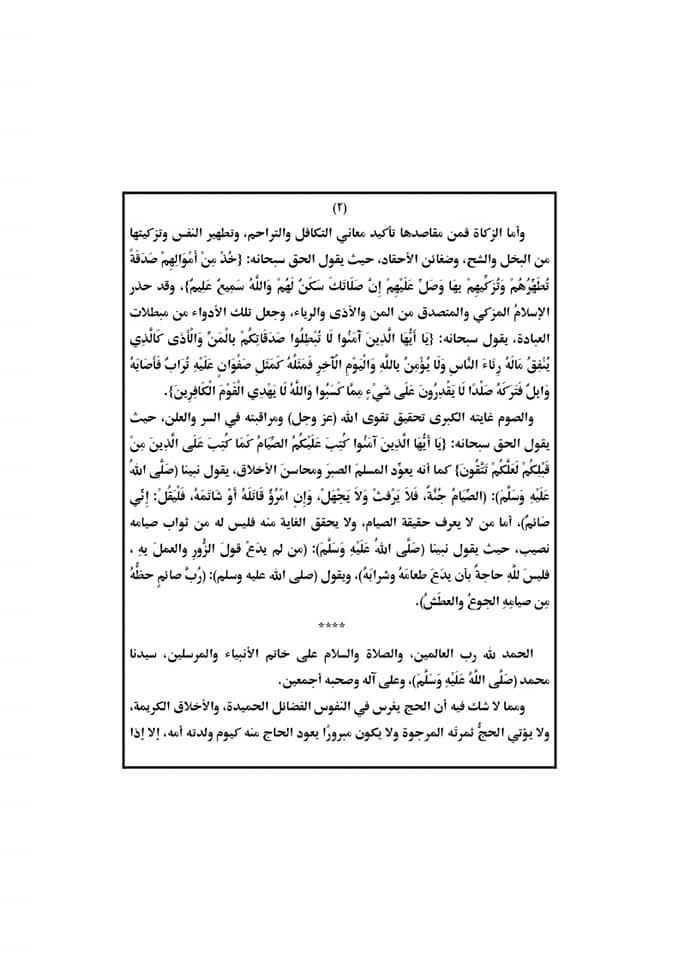 (٢)
وأما الزكاة فمن مقاصدها تأكيد معاني التكافل والتراحم، وتطهير النفس وتزكيتها
من البخل والشح، وضغائن الأحقاد، حيث يقول الحق سبحانه: {خُذْ مِنْ أَمْوَالِهِمْ صَدَقَةً
تُطَهِّرُهُمْ وَتُزَكِّيهِمْ بِهَا وَصَلِّ عَلَيْهِمْ إِنَّ صَلَاتَكَ سَكَنٌ لَهُمْ وَاللَّهُ سَمِيعٌ عَلِيمٌ}، وقد حذر
الإسلامُ المزكي والمتصدق من المن والأذى والرياء، وجعل تلك الأدواء من مبطلات
العبادة، يقول سبحانه: {يَا أَيُّهَا الَّذِينَ آمَنُوا لَا تُبْطِلُوا صَدَقَاتِكُمْ بِالْمَنِّ وَالْأَذَى كَالَّذِي
يُنْفِقُ مَالَهُ رِئَاءَ النَّاسِ وَلَا يُؤْمِنُ بِاللَّهِ وَالْيَوْمِ الْآخِرِ فَمَثَلُهُ كَمَثَلِ صَفْوَانٍ عَلَيْهِ تُرَابٌ فَأَصَابَهُ
وَابِلٌ فَتَرَكَهُ صَلْدًا لَا يَقْدِرُونَ عَلَى شَيْءٍ مِمَّا كَسَبُوا وَاللَّهُ لَا يَهْدِي الْقَوْمَ الْكَافِرِينَ}.
والصوم غايته الكبرى تحقيق تقوى الله (عز وجل) ومراقبته في السر والعلن، حيث
يقول الحق سبحانه: {يَا أَيُّهَا الَّذِينَ آمَنُوا كُتِبَ عَلَيْكُمُ الصِّيَامُ كَمَا كُتِبَ عَلَى الَّذِينَ مِنْ
قَبْلِكُمْ لَعَلَّكُمْ تَتَّقُونَ} كما أنه يعوِّد المسلمَ الصبرَ ومحاسنَ الأخلاق، يقول نبينا (صَلَّى اللهُ
عَلَيْهِ وَسَلَّمَ): (الصِّيَامُ جُنَّةٌ، فَلاَ يَرْفُثْ وَلاَ يَجْهَلْ، وَإِنِ امْرُؤٌ قَاتَلَهُ أَوْ شَاتَمَهُ، فَلْيَقُلْ: إِنِّي
صَائمٌ)، أما من لا يعرف حقيقة الصيام، ولا يحقق الغاية منه فليس له من ثواب صيامه
نصيب، حيث يقول نبينا (صَلَّى اللهُ عَلَيْهِ وَسَلَّمَ): (من لم يدَعْ قولَ الزُّورِ والعملَ بِهِ ،
فليسَ للَّهِ حاجةٌ بأن يدَعَ طعامَهُ وشرابَهُ)، ويقول (صلى الله عليه وسلم): (رُبَّ صائمٍ حظُّهُ
مِن صيامِهِ الجوعُ والعطَشُ).
****
الحمد لله رب العالمين، والصلاة والسلام على خاتم الأنبياء والمرسلين، سيدنا
محمد (صَلَّى اللَّهُ عَلَيْهِ وَسَلَّمَ)، وعلى آله وصحبه أجمعين.
ومما لا شك فيه أن الحج يغرس في النفوس الفضائل الحميدة، والأخلاق الكريمة،
ولا يؤتي الحجُّ ثمرتَه المرجوة ولا يكون مبرورًا يعود الحاج منه كيوم ولدته أمه، إلا إذا